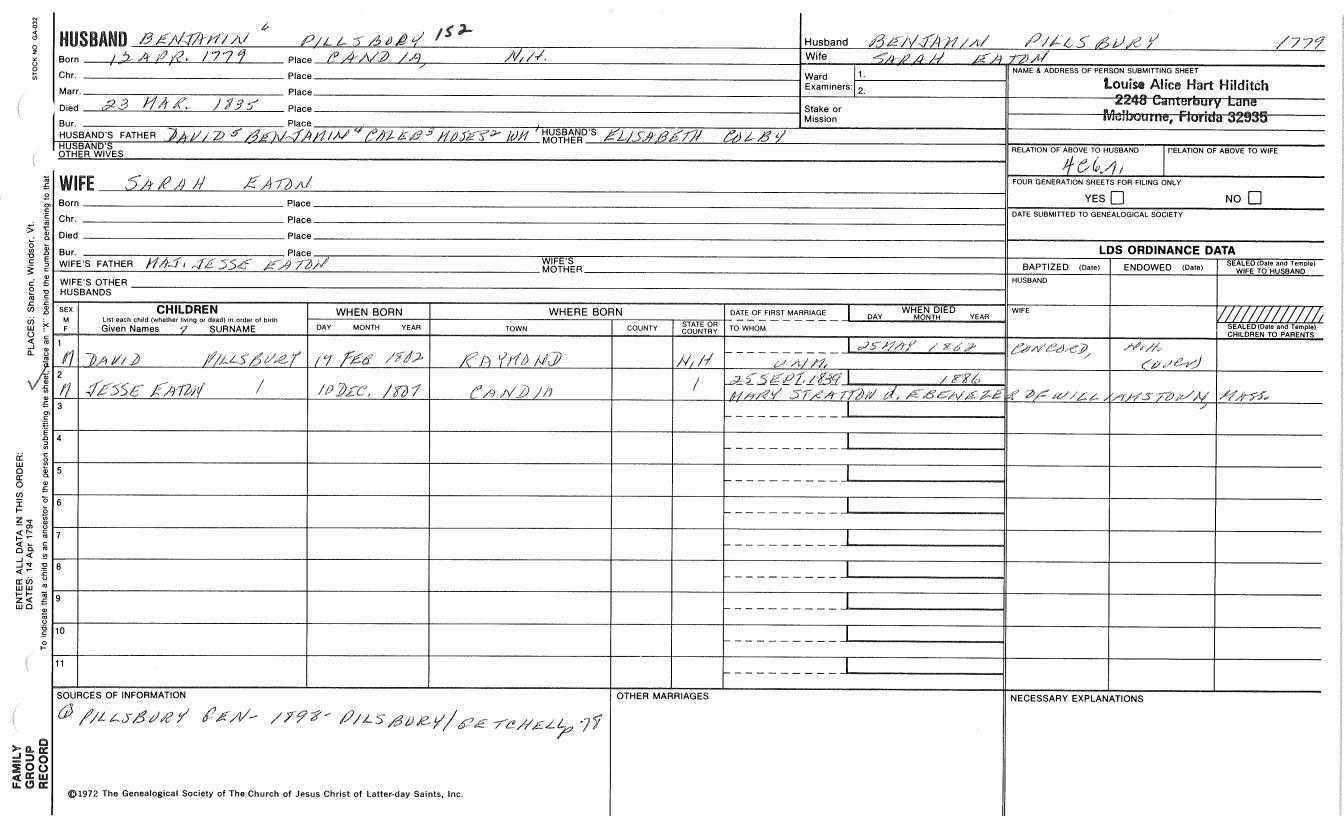 STOCK NO GA-032
HUSBAND BENJAMIN 6 PILLSBURY 152
Born 13 APR. 1779 Place CANDIA, N.H.
Chr. Place
Marr. Place
Died 23 MAR. 1835 Place
Bur. Place
HUSBAND'S FATHER DAVID 5 BENJAMIN 4 CALEB 3 MOSES 2 WM 1 HUSBAND'S MOTHER ELISABETH COLBY
HUSBAND'S OTHER WIVES
Husband BENJAMIN PILLSBURY 1779
Wife SARAH EATON
Ward Examiners: 1.
2.
Stake or Mission
NAME & ADDRESS OF PERSON SUBMITTING SHEET
Louise Alice Hart Hilditch
2248 Canterbury Lane
Melbourne, Florida 32935
RELATION OF ABOVE TO HUSBAND RELATION OF ABOVE TO WIFE
FOUR GENERATION SHEETS FOR FILING ONLY
YES NO
DATE SUBMITTED TO GENEALOGICAL SOCIETY
WIFE SARAH EATON
Born Place
Chr. Place
Died Place
Bur. Place
WIFE'S FATHER MAJ. JESSE EATON WIFE'S MOTHER
WIFE'S OTHER HUSBANDS
LDS ORDINANCE DATA
BAPTIZED (Date) ENDOWED (Date) SEALED (Date and Temple) WIFE TO HUSBAND
HUSBAND
WIFE
SEALED (Date and Temple) CHILDREN TO PARENTS
SEX M F CHILDREN List each child (whether living or dead) in order of birth Given Names 7 SURNAME
WHEN BORN DAY MONTH YEAR
WHERE BORN TOWN COUNTY STATE OR COUNTRY
DATE OF FIRST MARRIAGE TO WHOM
WHEN DIED DAY MONTH YEAR
1 M DAVID PILLSBURY 19 FEB 1802 RAYMOND N.H UNM. 25 MAY 1862 CONCORD, N.H. (OVER)
2 M JESSE EATON 10 DEC. 1807 CANDIA 25 SEPT. 1839 1886
MARY STRATTON d. EBENEZER OF WILLIAMSTOWN, MASS.
3
4
5
6
7
8
9
10
11
SOURCES OF INFORMATION
① PILLSBURY GEN- 1898- PILSBURY/GETCHELL p 78
OTHER MARRIAGES
NECESSARY EXPLANATIONS
©1972 The Genealogical Society of The Church of Jesus Christ of Latter-day Saints, Inc.
FAMILY GROUP RECORD
ENTER ALL DATA IN THIS ORDER:
DATES: 14 Apr 1794
PLACES: Sharon, Windsor, Vt.
To indicate that a child is an ancestor of the person submitting the sheet, place an "X" behind the number pertaining to that